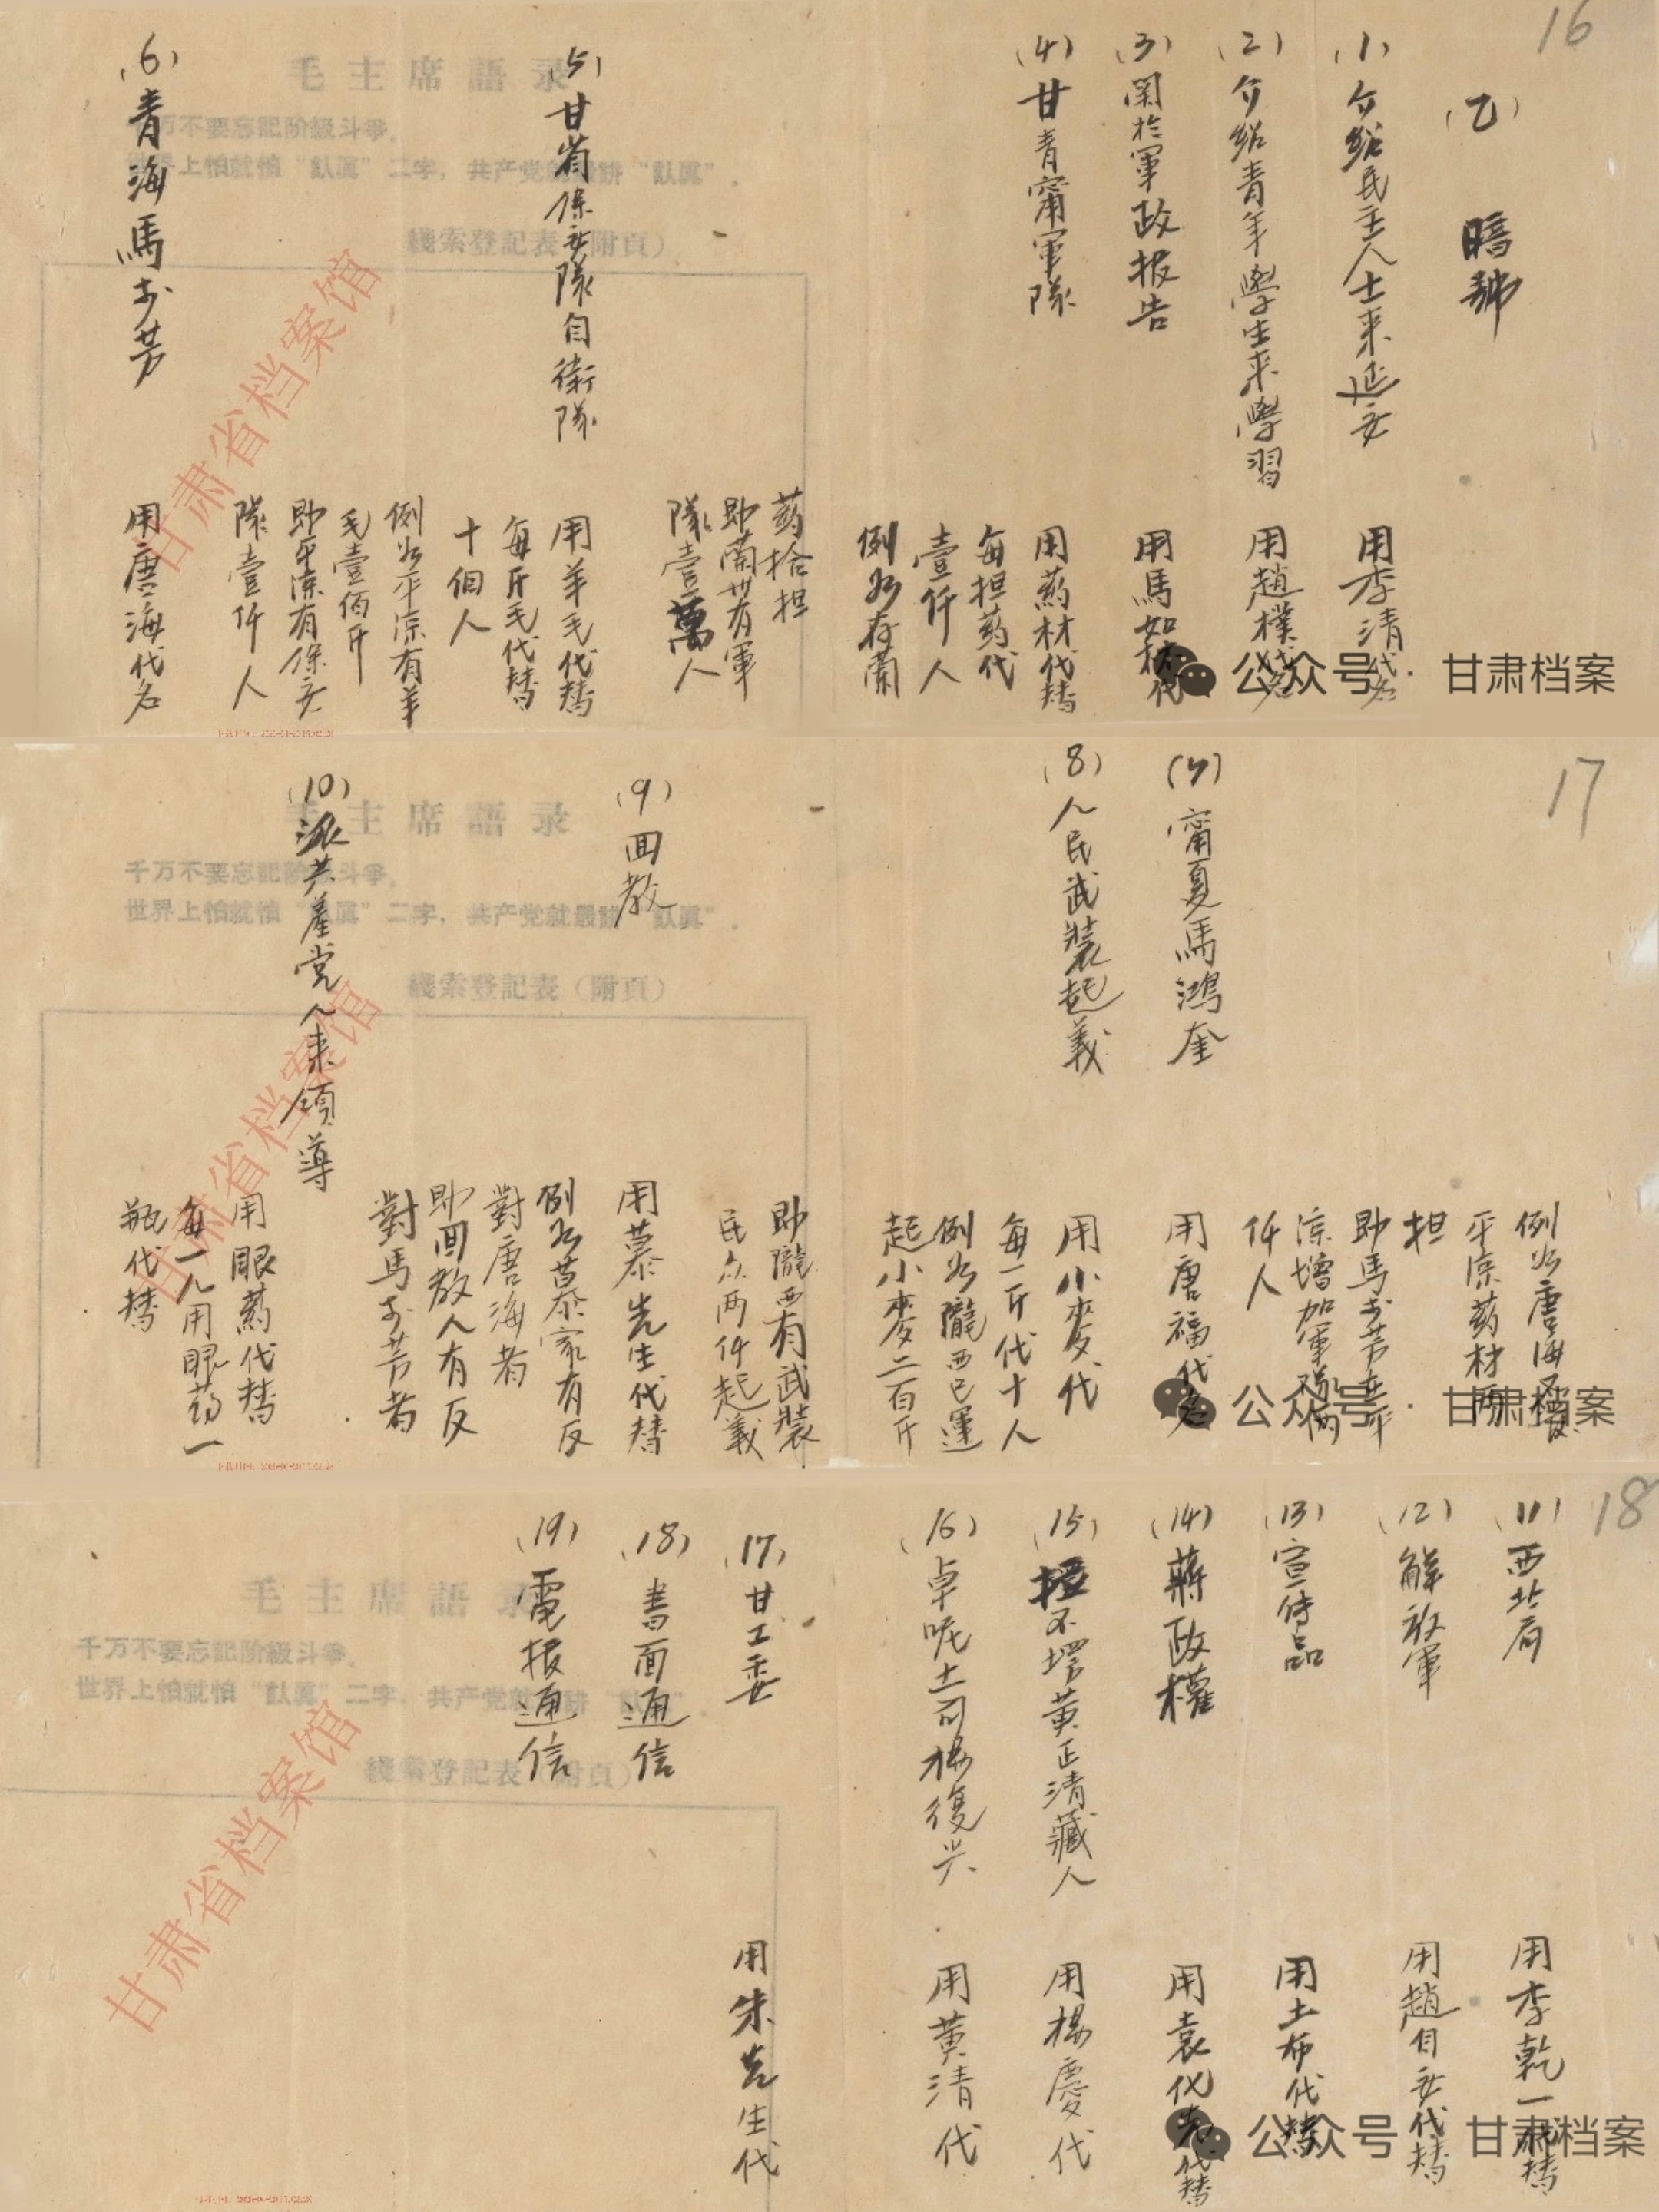 16
(乙) 暗號
(1) 介紹民主人士来延安 用李清代名
(2) 介紹青年學生来學習 用趙樸代名
(3) 関於軍政报告 用馬如林代
(4) 甘青甯軍隊 用葯材代替
每担葯代
壹仟人
例如存蘭
葯拾担
即蘭州有軍
隊壹萬人
(5) 甘省保安隊自衛隊 用羊毛代替
每斤毛代替
十個人
例如平凉有羊
毛壹佰斤
即平凉有保安
隊壹仟人
(6) 青海馬步芳 用唐海代名
毛主席語录
千万不要忘記阶級斗爭。
世界上怕就怕“認眞”二字，共产党就最講“認眞”。
綫索登記表（附頁）
甘肃省档案馆
公众号·甘肃档案
17
例如唐海又反
平凉葯材両
担
即馬步芳在平
凉增加軍隊両
仟人
(7) 甯夏馬鴻奎 用唐福代名
(8) 人民武裝起義 用小麥代
每一斤代十人
例如隴西已運
起小麥二百斤
即隴西有武裝
民众両仟起義
(9) 回教 用慕先生代替
例如慕家有反
對唐海者
即回教人有反
對馬步芳者
(10) 派共產党人来領導 用眼葯代替
每一人用眼葯一
瓶代替
毛主席語录
千万不要忘記阶級斗爭。
世界上怕就怕“認眞”二字，共产党就最講“認眞”。
綫索登記表（附頁）
甘肃省档案馆
公众号·甘肃档案
18
(11) 西北局 用李乾一代替
(12) 解放軍 用趙自安代替
(13) 宣传品 用土布代替
(14) 蔣政權 用袁化光代替
(15) 拉不塄黄正清藏人 用楊慶代
(16) 卓呢土司楊復兴 用黄清代
(17) 甘工委 用朱先生代
(18) 書面通信
(19) 電报通信
毛主席語录
千万不要忘記阶級斗爭。
世界上怕就怕“認眞”二字，共产党就最講“認眞”。
綫索登記表（附頁）
甘肃省档案馆
公众号·甘肃档案